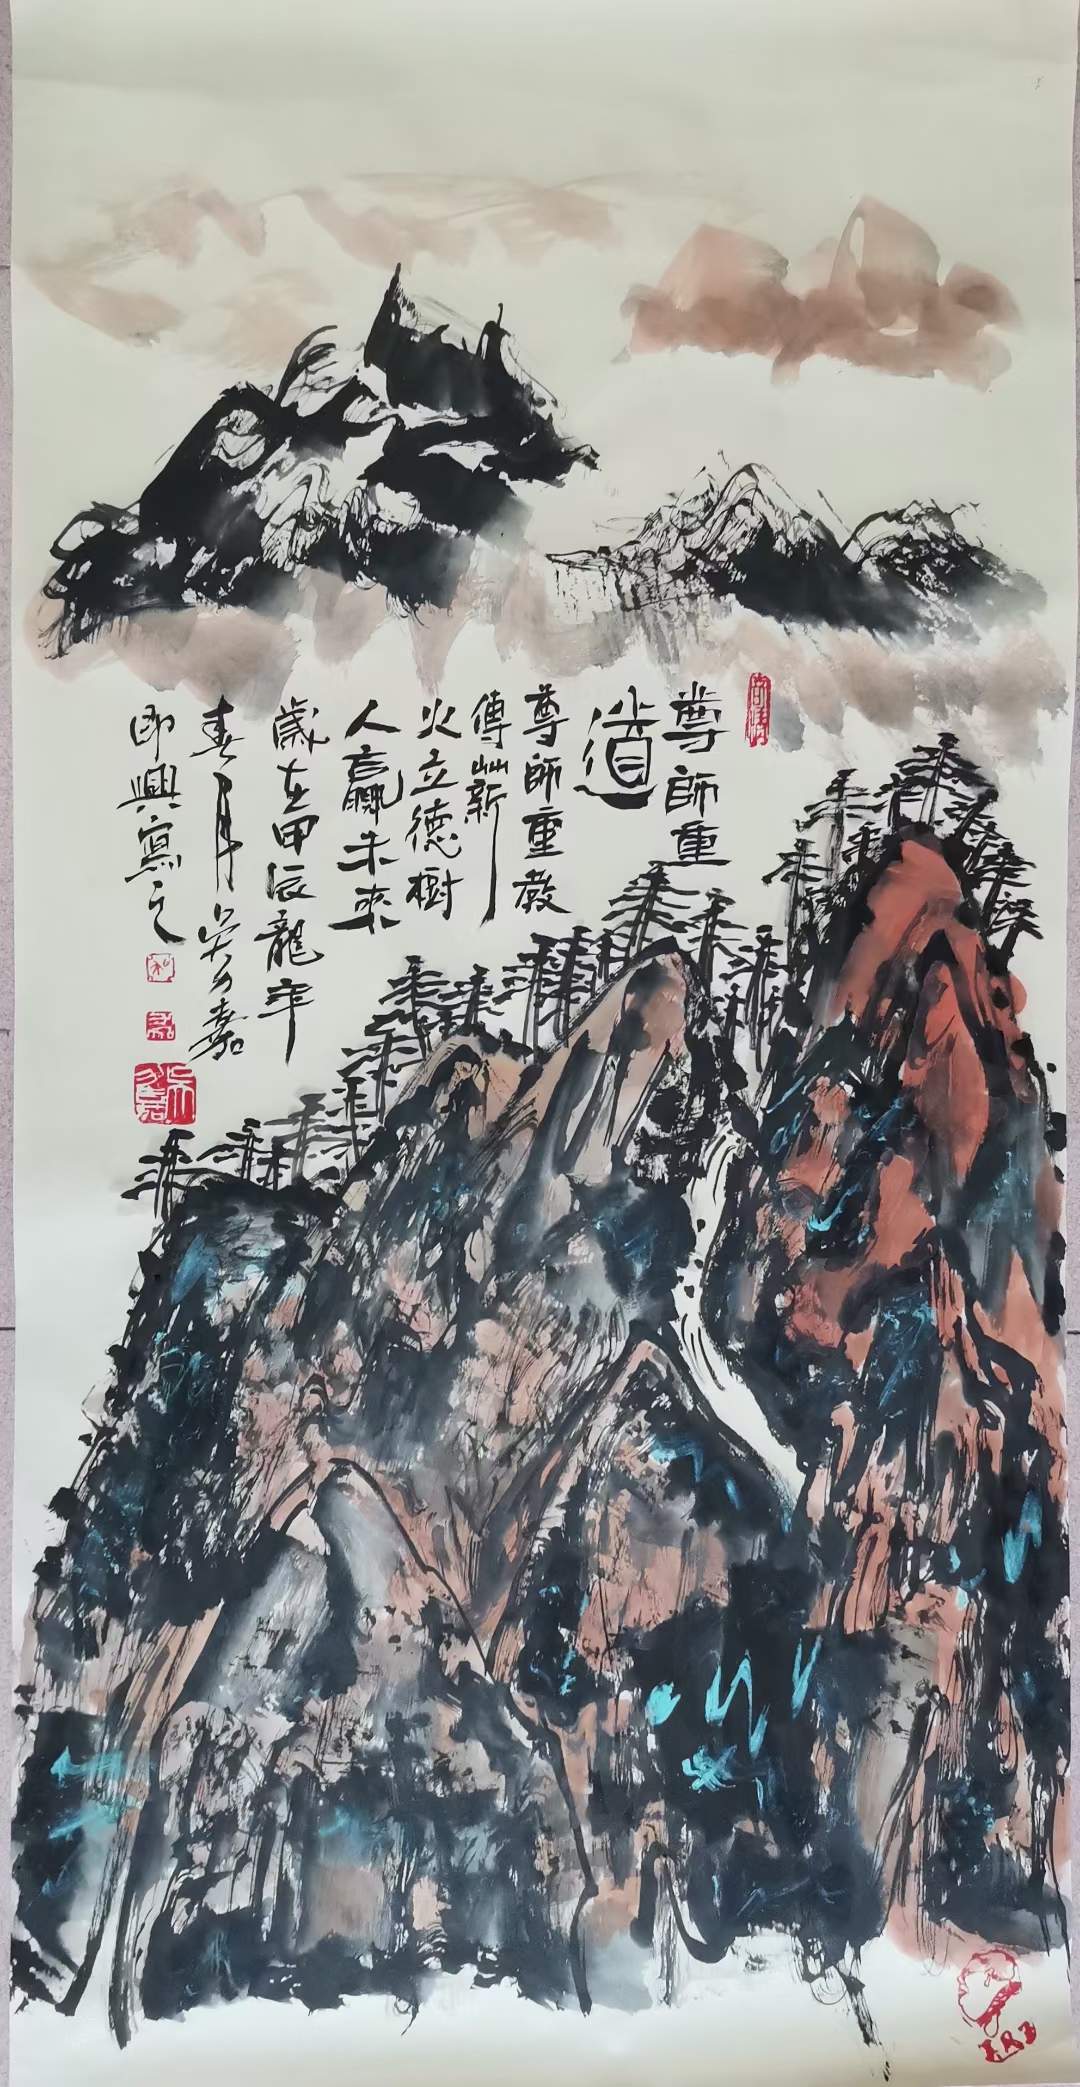 尊師重
道
尊師重教
傳薪
火立德樹
人贏未來
歲在甲辰龍年
春月吴力嘉
即興寫之